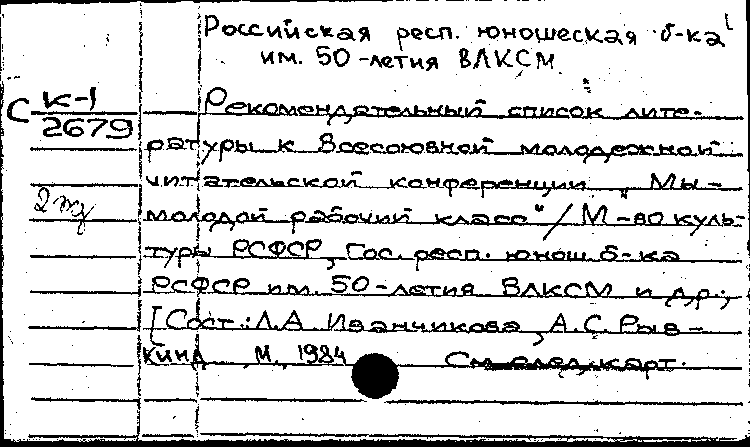 Российская респ. юношеская б-ка
им. 50-летия ВЛКСМ
С К-1
2679
Рекомендательный список лите-
ратуры к Всесоюзной молодежной
читательской конференции "Мы -
молодой рабочий класс" / М-во куль-
туры РСФСР, Гос. респ. юнош. б-ка
РСФСР им. 50-летия ВЛКСМ и др.;
2 экз
[Сост.: Л.А. Иванчикова, А.С. Рыв-
кинд М., 1984 См. след. карт.